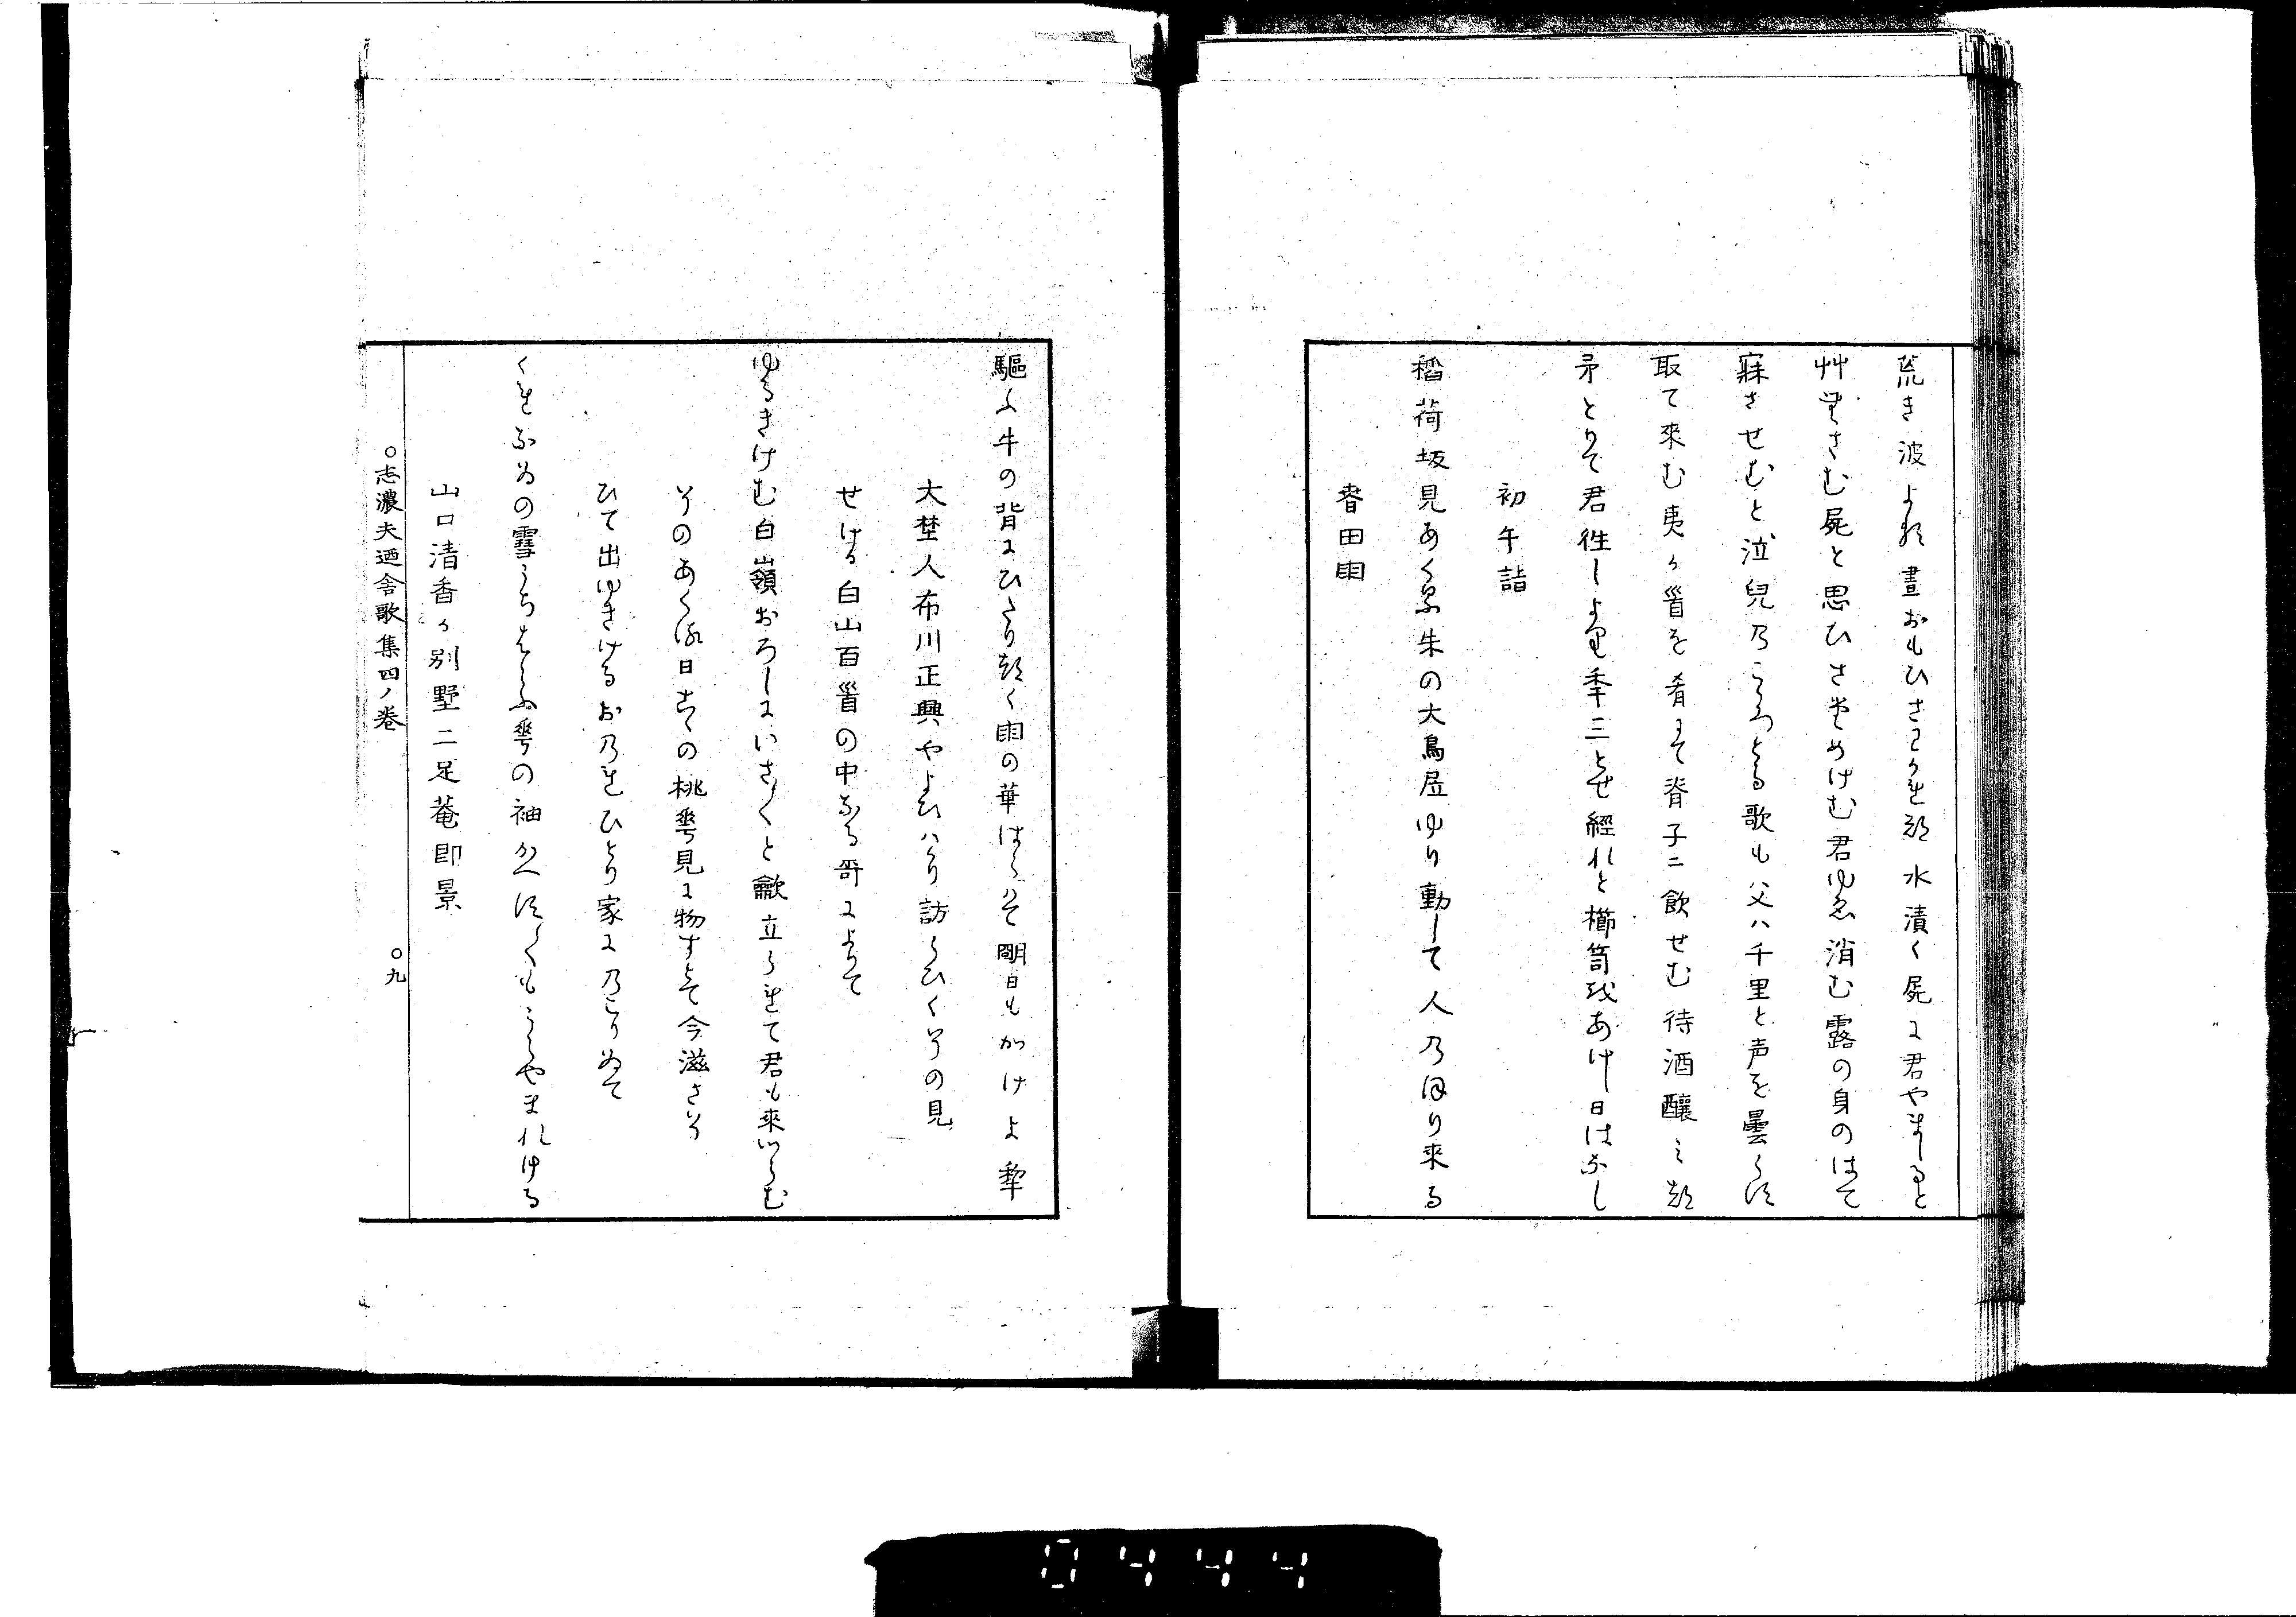 荒き波よる晝おもひさわかれぬ水漬く屍に君やましると
艸むさむ屍と思ひさためけむ君ゆゑ消む露の身のはて
寐させむと泣兒乃こゝろとる歌も父ハ千里と声を曇らす
取て來む夷か首を肴にて脊子ニ飲せむ待酒釀ミぬ
矛とりて君徃しより秊三とせ經れと櫛笥我あけし日はなし
初午詣
稻荷坂見あくる朱の大鳥居ゆり動して人乃ほり来る
春田雨
驅ふ牛の背にひたり頻く雨の華はらハて明日もかけよ犂
大埜人布川正興やよひハかり訪らひくその見
せける白山百首の中なる哥によりて
ゆるきけむ白嶺おろしにいさ〳〵と歗立られて君も来つらむ
そのあくる日去々の桃華見に物すとて今滋さそ
ひて出ゆきけるお乃れひとり家に乃こりゐて
くれなゐの雪うちはらふ華の袖かへす〳〵もうらやまれける
山口清香か別墅二足菴即景
○志濃夫廼舎歌集四ノ巻
○九
0444